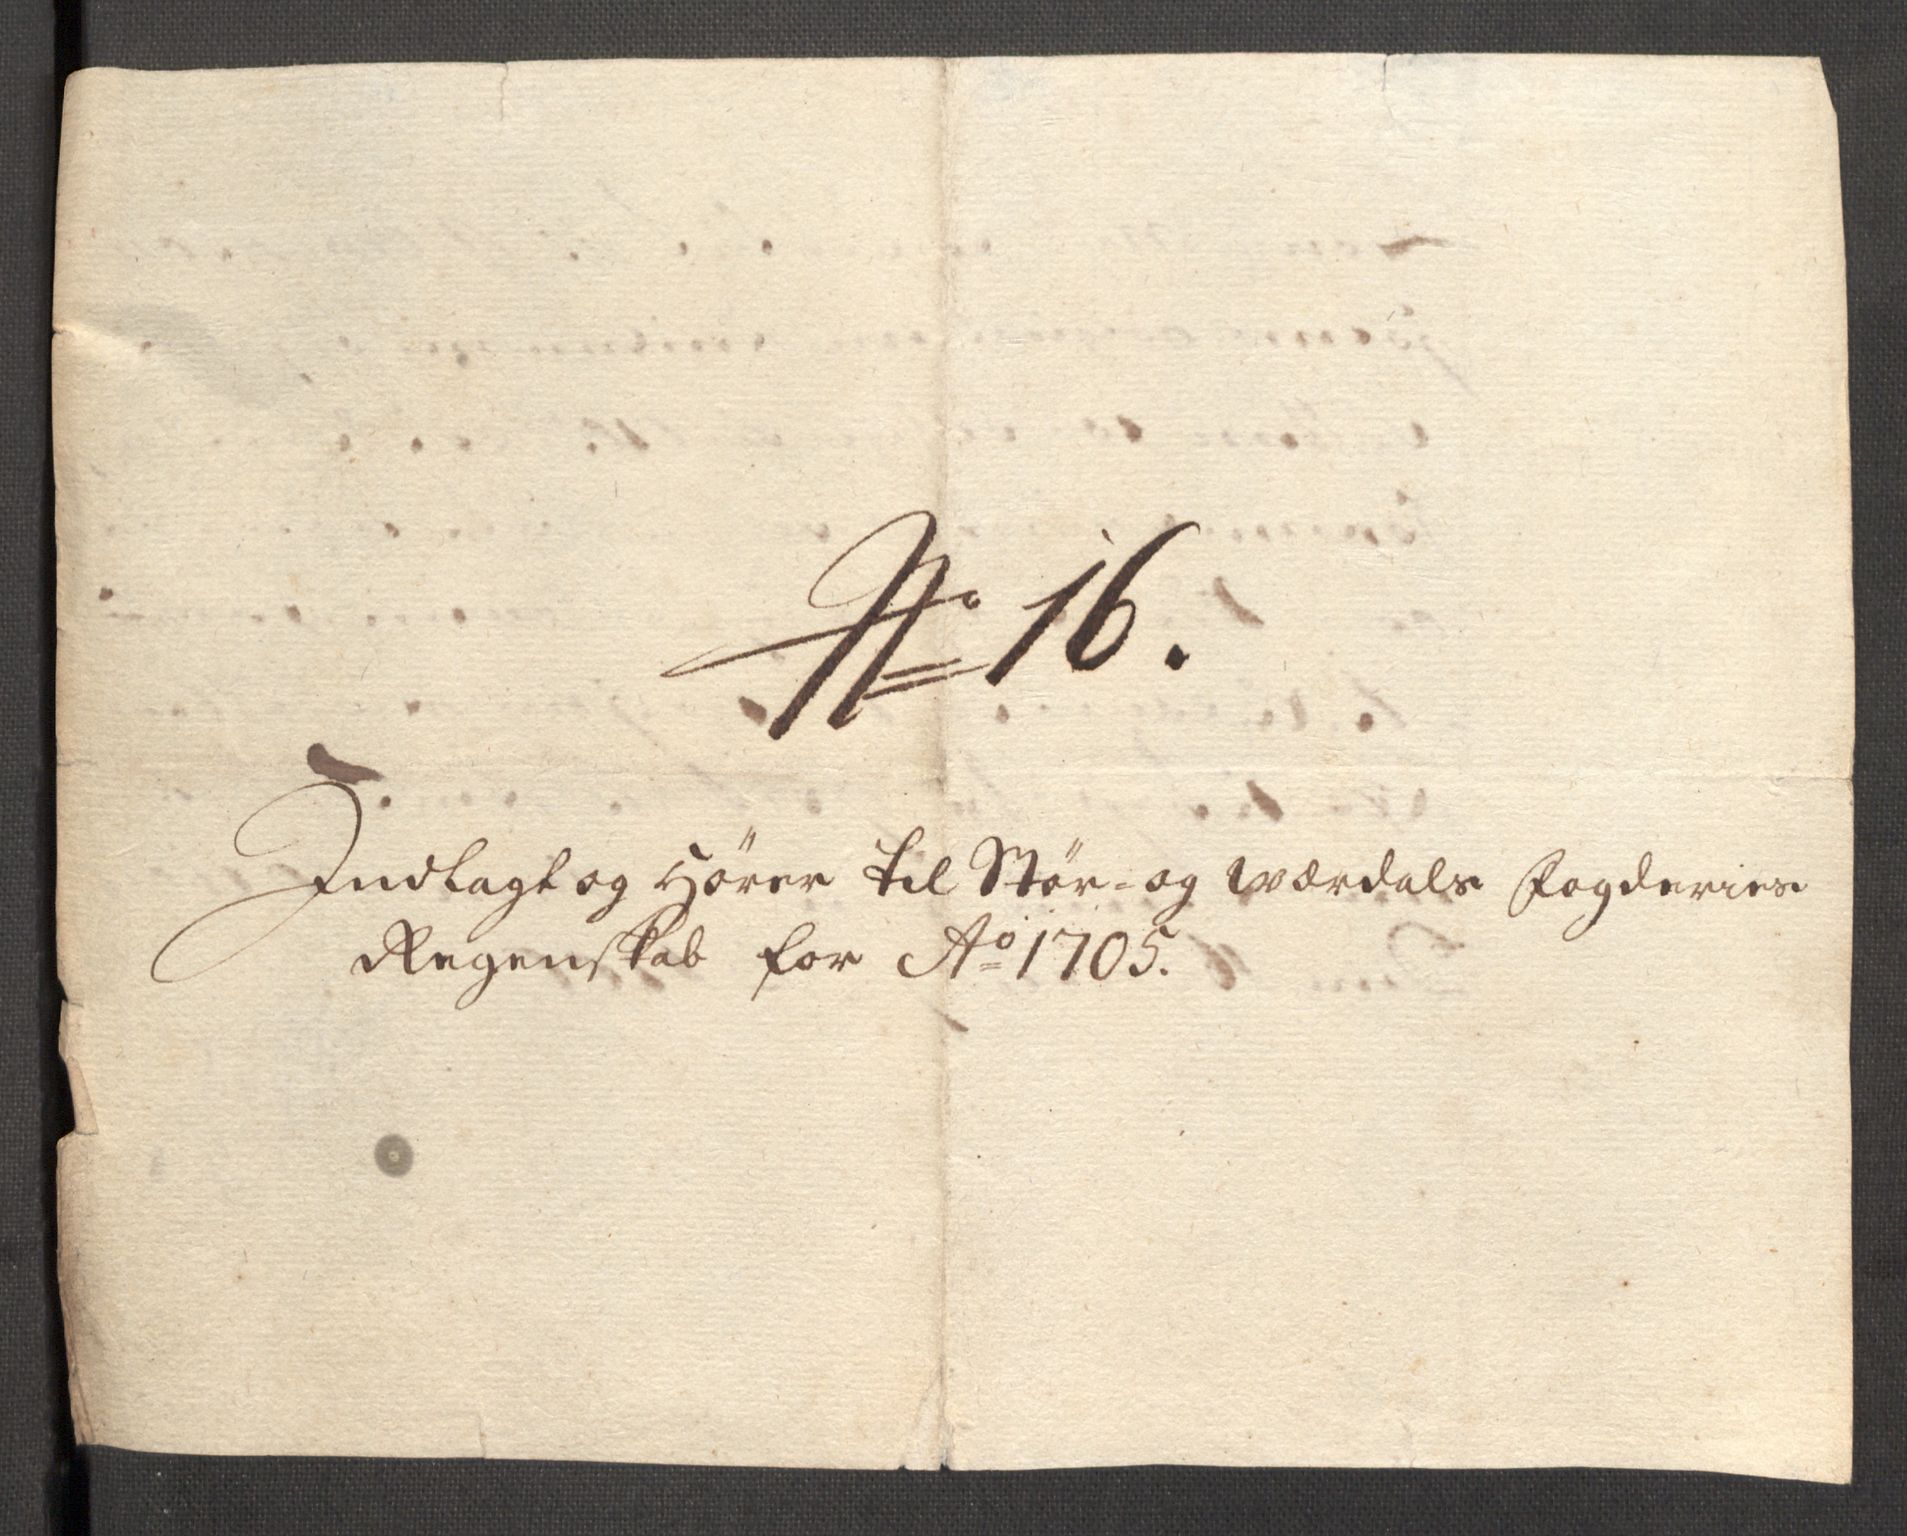 No 16.
Indlagt og Hører til Stør- og Wærdals Fogderies
Regenskab for Ao 1705.